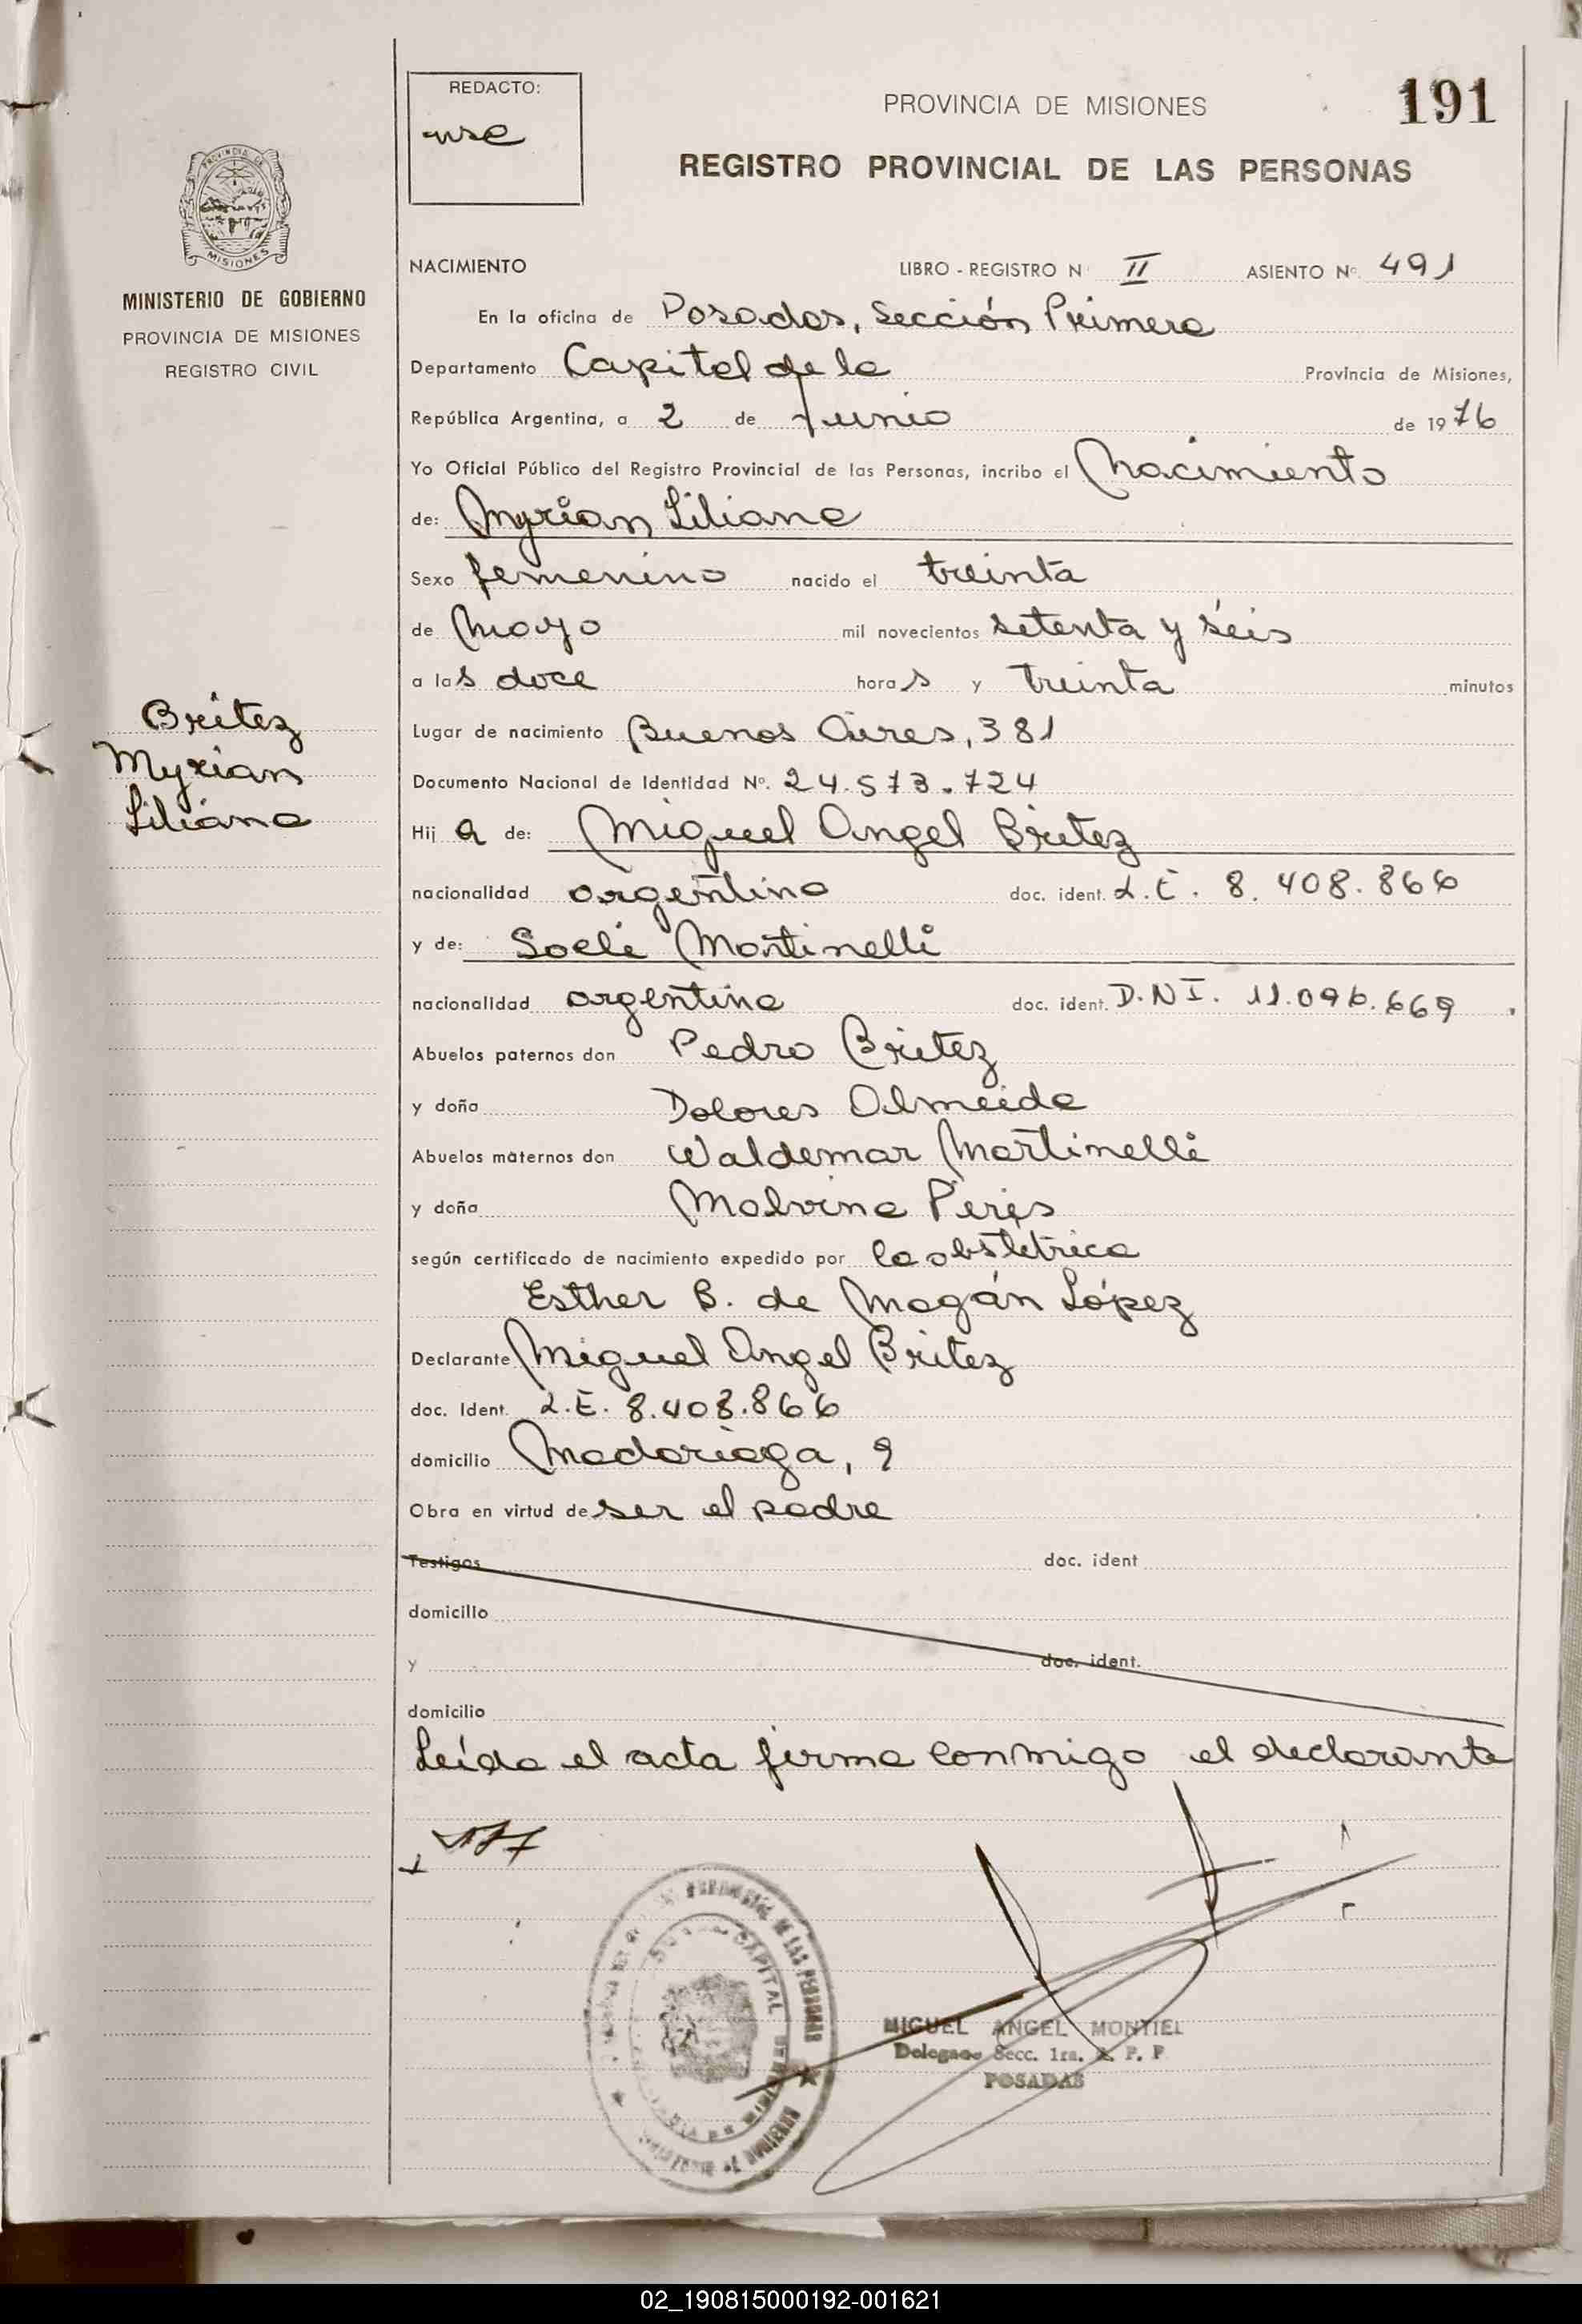 REDACTO:
PROVINCIA DE MISIONES
191
REGISTRO PROVINCIAL DE LAS PERSONAS
PROVINCIA DE
MISIONES
MINISTERIO DE GOBIERNO
PROVINCIA DE MISIONES
REGISTRO CIVIL
Britez
Myrian
Liliana
NACIMIENTO LIBRO - REGISTRO N° II ASIENTO N° 491
En la oficina de Posadas, Sección Primera
Departamento Capital de la Provincia de Misiones,
República Argentina, a 2 de Junio de 1976
Yo Oficial Público del Registro Provincial de las Personas, incribo el Nacimiento
de: Myrian Liliana
Sexo femenino nacido el treinta
de Mayo mil novecientos setenta y séis
a las doce horas y treinta minutos
Lugar de nacimiento Buenos Aires, 381
Documento Nacional de Identidad N°. 24.573.724
Hija de: Miguel Angel Britez
nacionalidad argentina doc. ident. L.E. 8.408.866
y de: Soeli Martinelli
nacionalidad argentina doc. ident. D.N.I. 11.096.669
Abuelos paternos don Pedro Britez
y doña Dolores Almeida
Abuelos maternos don Waldemar Martinelli
y doña Malvina Peres
según certificado de nacimiento expedido por la obstétrica
Esther B. de Magán López
Declarante Miguel Angel Britez
doc. Ident. L.E. 8.408.866
domicilio Madariaga, 9
Obra en virtud de ser el padre
Testigos doc. ident
domicilio
y doc. ident.
domicilio
Leída el acta firma conmigo el declarante
CAPITAL
DE LAS PERSONAS
MIGUEL ANGEL MONTIEL
Delegado Secc. 1ra. R. P. P
POSADAS
02_190815000192-001621